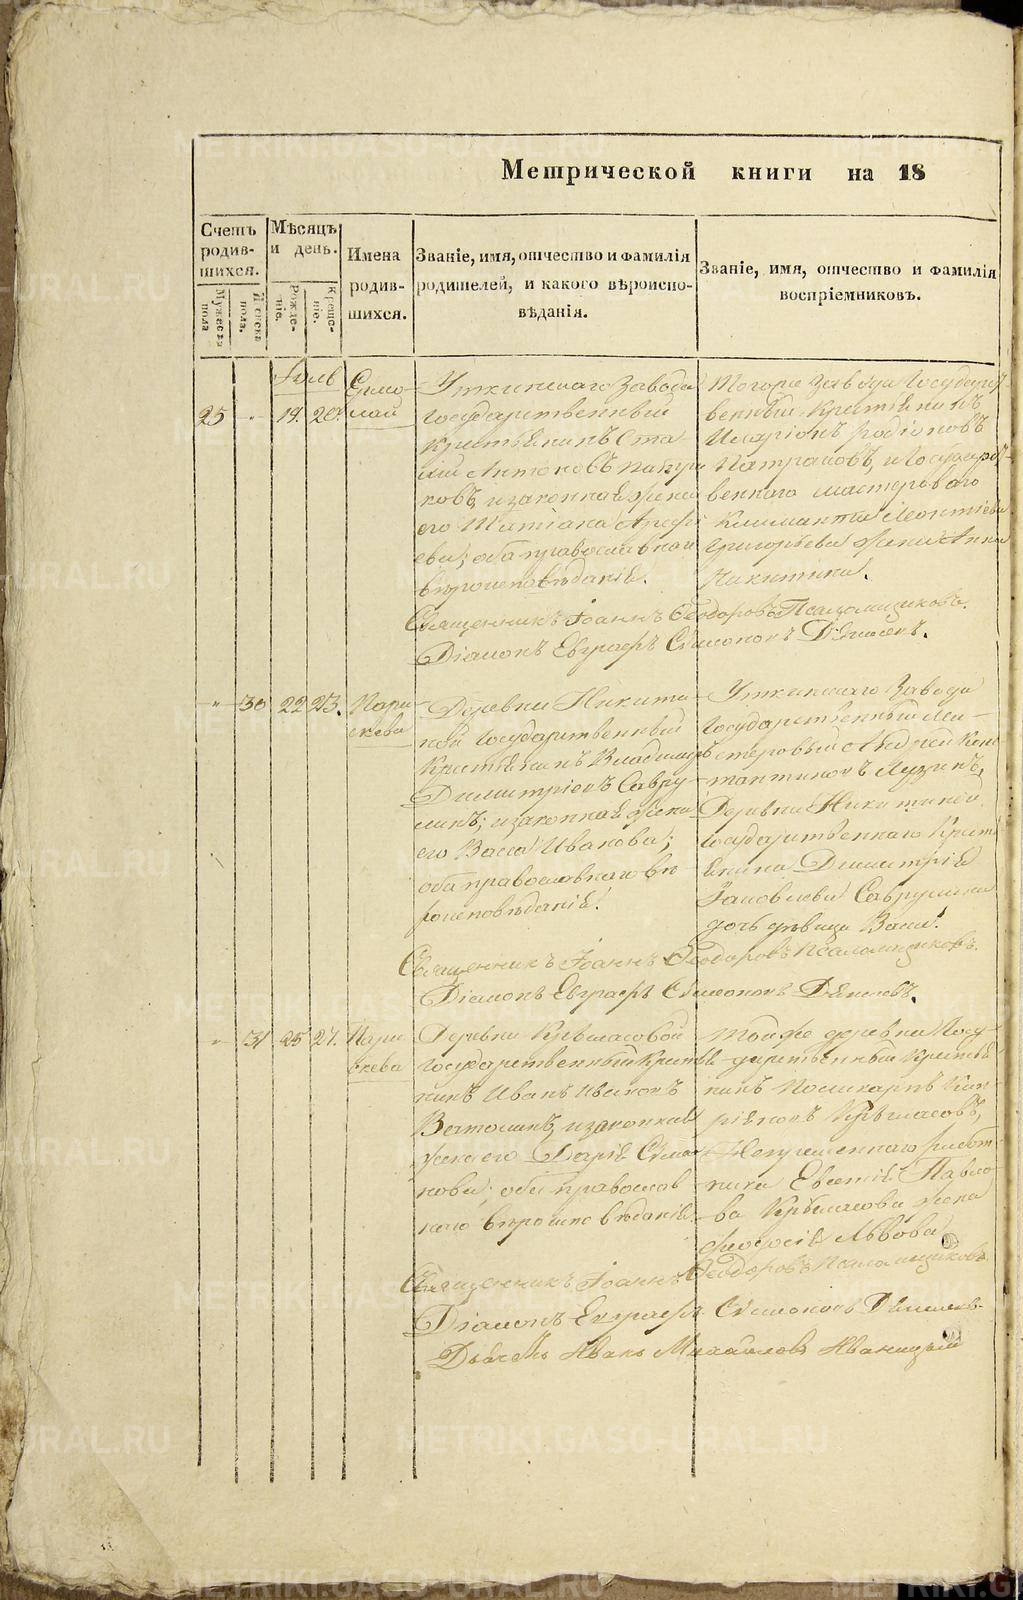 Метрической книги на 18
Счетъ родив-шихся.
Мужеска пола
Женска пола.
Мѣсяцъ и день.
Рожде-нія.
Креще-нія.
Имена родив-шихся.
Званіе, имя, отчество и фамилія родителей, и какого вѣроиспо-вѣданія.
Званіе, имя, отчество и фамилія воспріемниковъ.
Іюль
25 " 19. 20.
Ермо-
лай
Уткинскаго Завода
Государственный
Крестьянинъ
Антоновъ
ковъ, и законная жена
его Татіана
ева; оба православнаго
вѣроисповѣданія.
Тогоже завода Государст-
венный Крестьянинъ
Иларіонъ Родіоновъ
Патраковъ, и Государст-
веннаго мастероваго
Климента Леонтіева
Григорьева жена Анна
Никитина.
Священникъ Іоаннъ Ѳеодоровъ Псаломщиковъ.
Діаконъ Евграфъ Симоновъ
" 30 22 23.
Пара-
скева
Деревни Никити-
ной Государственный
Крестьянинъ Владиміръ
Димитріевъ Савру-
линъ; и законная жена
его Васса Иванова;
оба православнаго вѣ-
роисповѣданія.
Уткинскаго Завода
Государственный Ма-
стеровый Андрей Конс
тантиновъ Лузинъ,
Деревни Никитиной
Государственнаго Крест
янина Димитрія
Іаковлева Саврулина
дочь дѣвица Васса.
Священникъ Іоаннъ Ѳеодоровъ Псаломщиковъ.
Діаконъ Евграфъ Симоновъ
" 31 25 27.
Пара-
скева
Деревни Крыласовой
Государственный Крестья-
нинъ Иванъ Ивановъ
и законная
жена его Дарія Симо-
нова; оба православ
наго вѣроисповѣданія.
Тойже деревни Госу-
дарственный Крестья
нинъ Поликарпъ Кип-
ріяновъ Крыласовъ,
работ-
ника Евсевія Павло-
ва Крыласова жена
Львова
Священникъ Іоаннъ Ѳеодоровъ Псаломщиковъ
Діаконъ Евграфъ Симоновъ
Дьячекъ Иванъ Михайловъ Иваницкій
METRIKI.GASO-URAL.RU